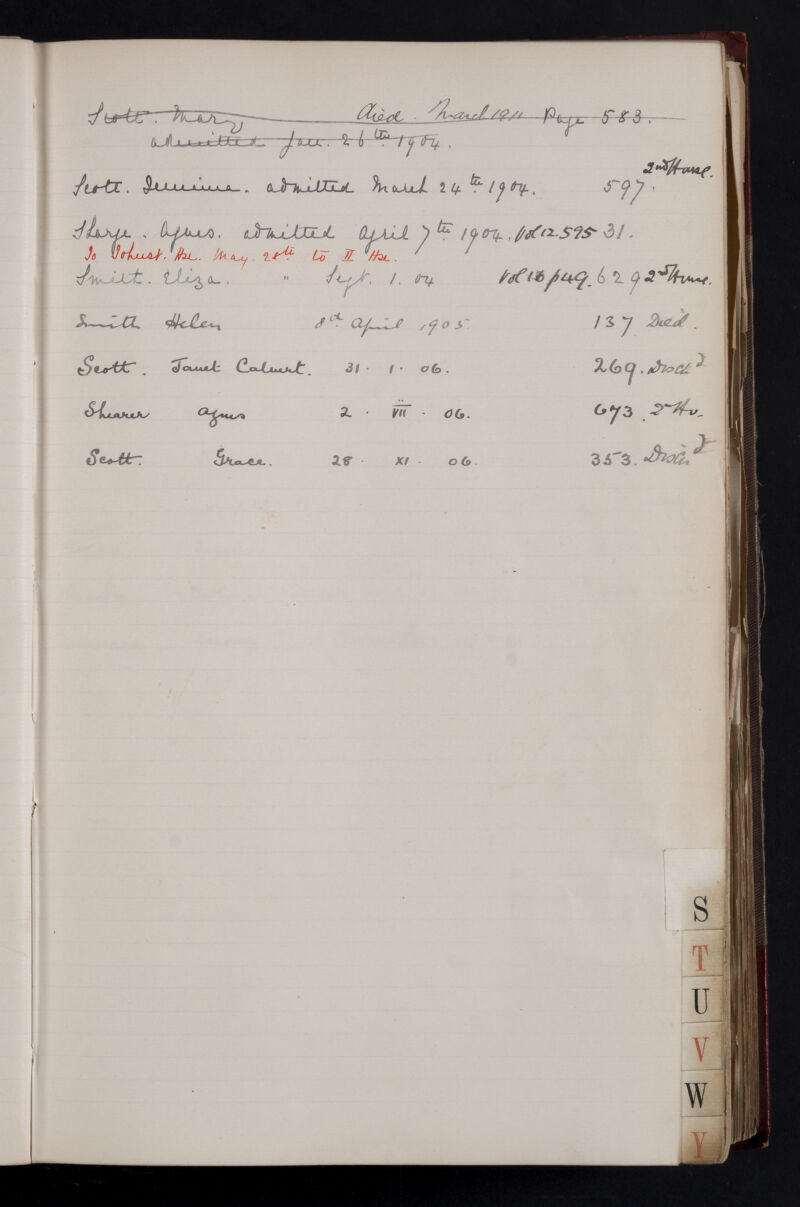 Scott. Mary died. March 1911 Page 583.
admitted Jan. 26th 1904.
2nd House.
Scott. Jemima. admitted March 24th 1904. 597.
Sharpe. Agnes. admitted April 7th 1904. Vol 12. 595 31.
To Johnst. Hse. May 28th to II Hse.
Smith. Eliza. " Sept. 1. 04 Vol 16 p49. 629 2nd House.
Smith Helen 8th April 1905. 137 Died.
Scott. Janet Calvert. 31. 1. 06. 269. Discd
Shearer Agnes 2. VII. 06. 673. 2nd Ho.
Scott. Grace. 28. XI. 06. 353. Discd
S
T
U
V
W
Y